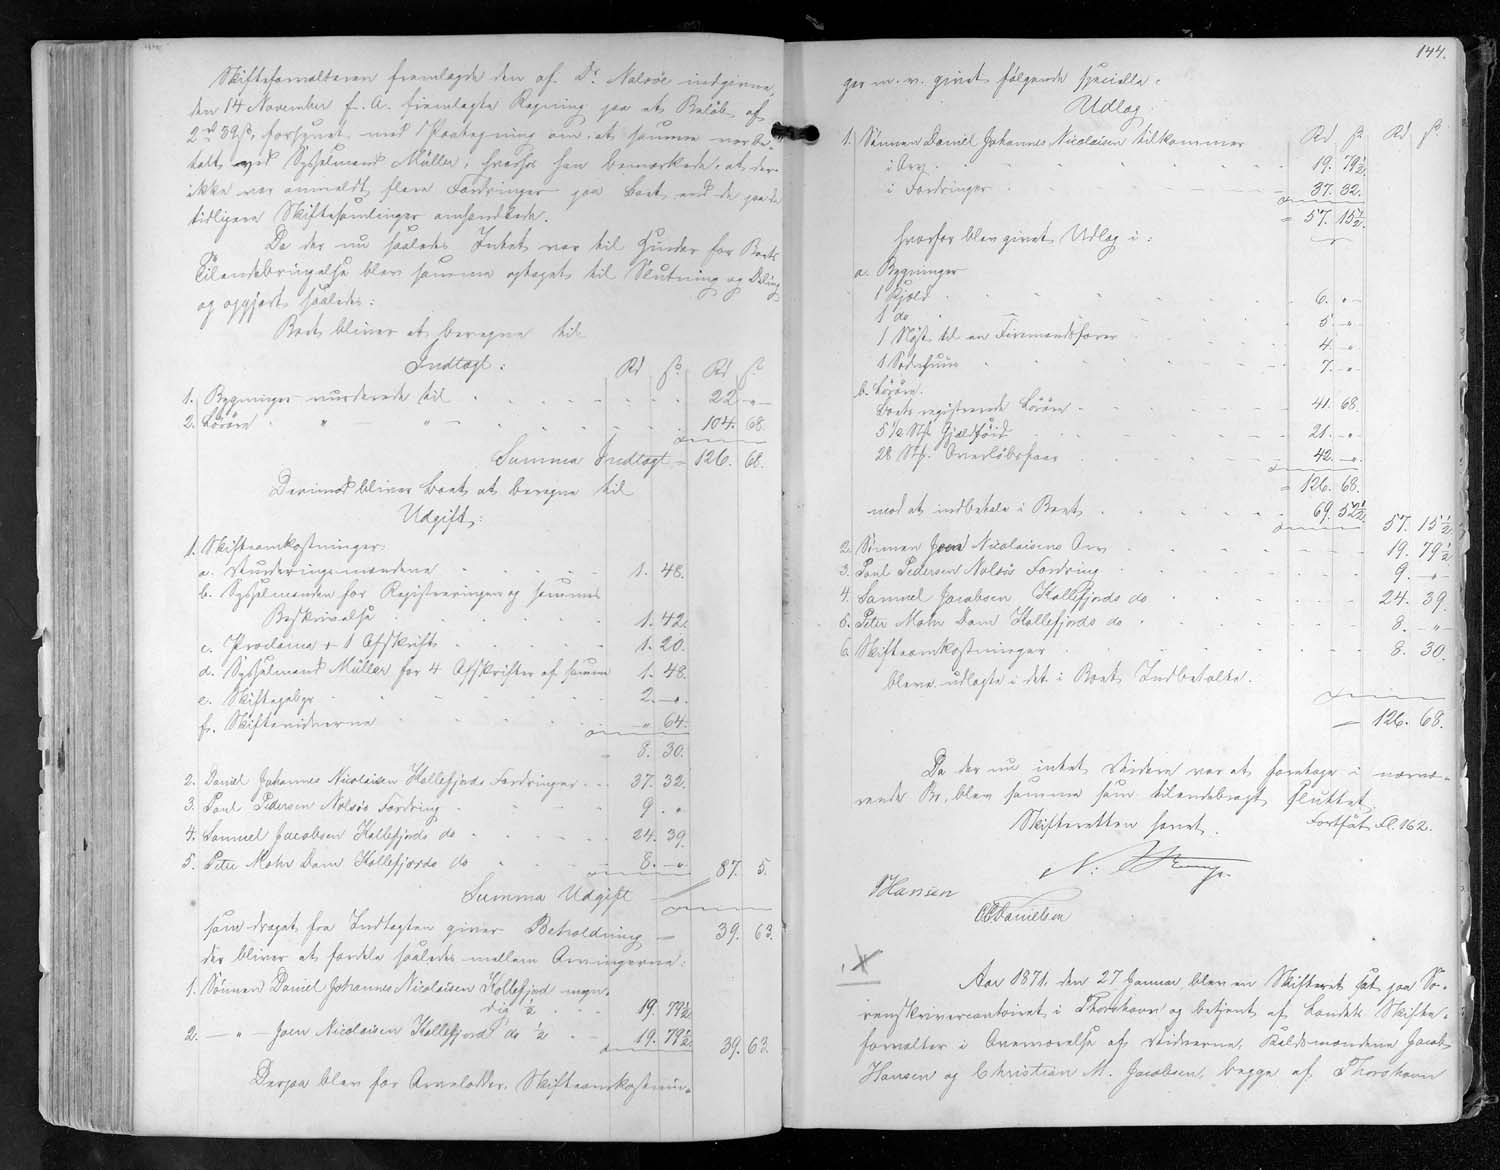 Skifteforvalteren fremlagde den af Dr. Nolsöe indgivne,
den 14 November f. A. fremlagte Regning paa et Beløb af
2 rd 39 ß, forsynet med Paategning om, at samme var be-
talt ved Sysselmand Müller, hvorfor han bemærkede, at der
ikke var anmeldt flere Fordringer paa Boet, end de paa de
tidligere Skiftesamlinger omhandlede.
Da der nu saaledes Intet var til Hinder for Boets
Tilendebringelse blev samme optaget til Slutning og Deling
og opgjort saaledes:
Boet bliver at beregne til
Indtægt: Rd ß. Rd ß
1. Bygninger vurderede til 22 - " -
2. Løsøre " - " - 104. 68.
Summa Indtægt - 126. 68.
Derimod bliver Boet at beregne til
Udgift:
1. Skifteomkostninger:
a. Vurderingsmændene 1. 48.
b. Sysselmanden for Registreringen og sammes
Beskrivelse 1. 42.
c. Proclama + 1 Afskrift 1. 20.
d. Sysselmand Müller for 4 Afskrifter af samme 1. 48.
e. Skiftegebyr 2. - " .
f. Skiftevidnerne " 64.
8. 30.
2. Daniel Johannes Nicolaisen Kollefjords Fordringer 37. 32.
3. Poul Pedersen Nolsös Fordring 9. "
4. Samuel Jacobsen Kollefjords do 24. 39.
5. Peter Mohr Dam Kollefjords do 8. - " 87. 5.
Summa Udgift
som draget fra Indtægten giver Beholdning - 39. 63.
der bliver at fordele saaledes mellem Arvingerne:
1. Sønnen Daniel Johannes Nicolaisen Kollefjord myn-
dig 1/2 19. 79 1/2
2. - " - Joen Nicolaisen Kollefjord do 1/2 19. 79 1/2 39. 63.
Derpaa blev for Arvelodder, Skifteomkostnin-
144.
ger m. v. givet følgende specielle
Udlæg.
Rd ß. Rd ß.
1. Sønnen Daniel Johannes Nicolaisen tilkommer
i Arv 19. 79 1/2
i Fordringer 37. 32.
= 57. 15 1/2
hvorfor blev givet Udlæg i:
a. Bygninger
1 Hjeld 6. " -
1 do 5. - " -
1 Nøst til en Firemandsfarer 4. - "
1 Sodnhuus 7. - "
b. Løsøre.
Boets registrerede Løsøre 41. 68.
5 1/2 Stk. Gjældføed 21. - "
28 Stk. Overløbsfaar 42. - " .
= 126. 68.
mod at indbetale i Boet 69. 52 1/2 57. 15 1/2
2. Sønnen Joen Nicolaisens Arv 19. 79 1/2
3. Poul Pedersen Nolsös Fordring 9. - " -
4. Samuel Jacobsen Kollefjords do 24. 39.
5. Peter Mohr Dam Kollefjords do 8. - " -
6. Skifteomkostninger 8. 30.
bleve udlagte i det i Boet Indbetalte.
- 126. 68.
Da der nu intet Videre var at foretage i nærvæ-
rende Bo, blev samme som tilendebragt sluttet.
Skifteretten hævet. Fortsat Fl. 162.
N.
J Hansen
Danielsen
X
Aar 1871, den 27 Januar blev en Skifteret sat paa So-
renskrivercontoiret i Thorshavn og betjent af Landets Skifte-
forvalter i Overværelse af Vidnerne, Raldsmændene Jacob
Hansen og Christian M. Jacobsen, begge af Thorshavn